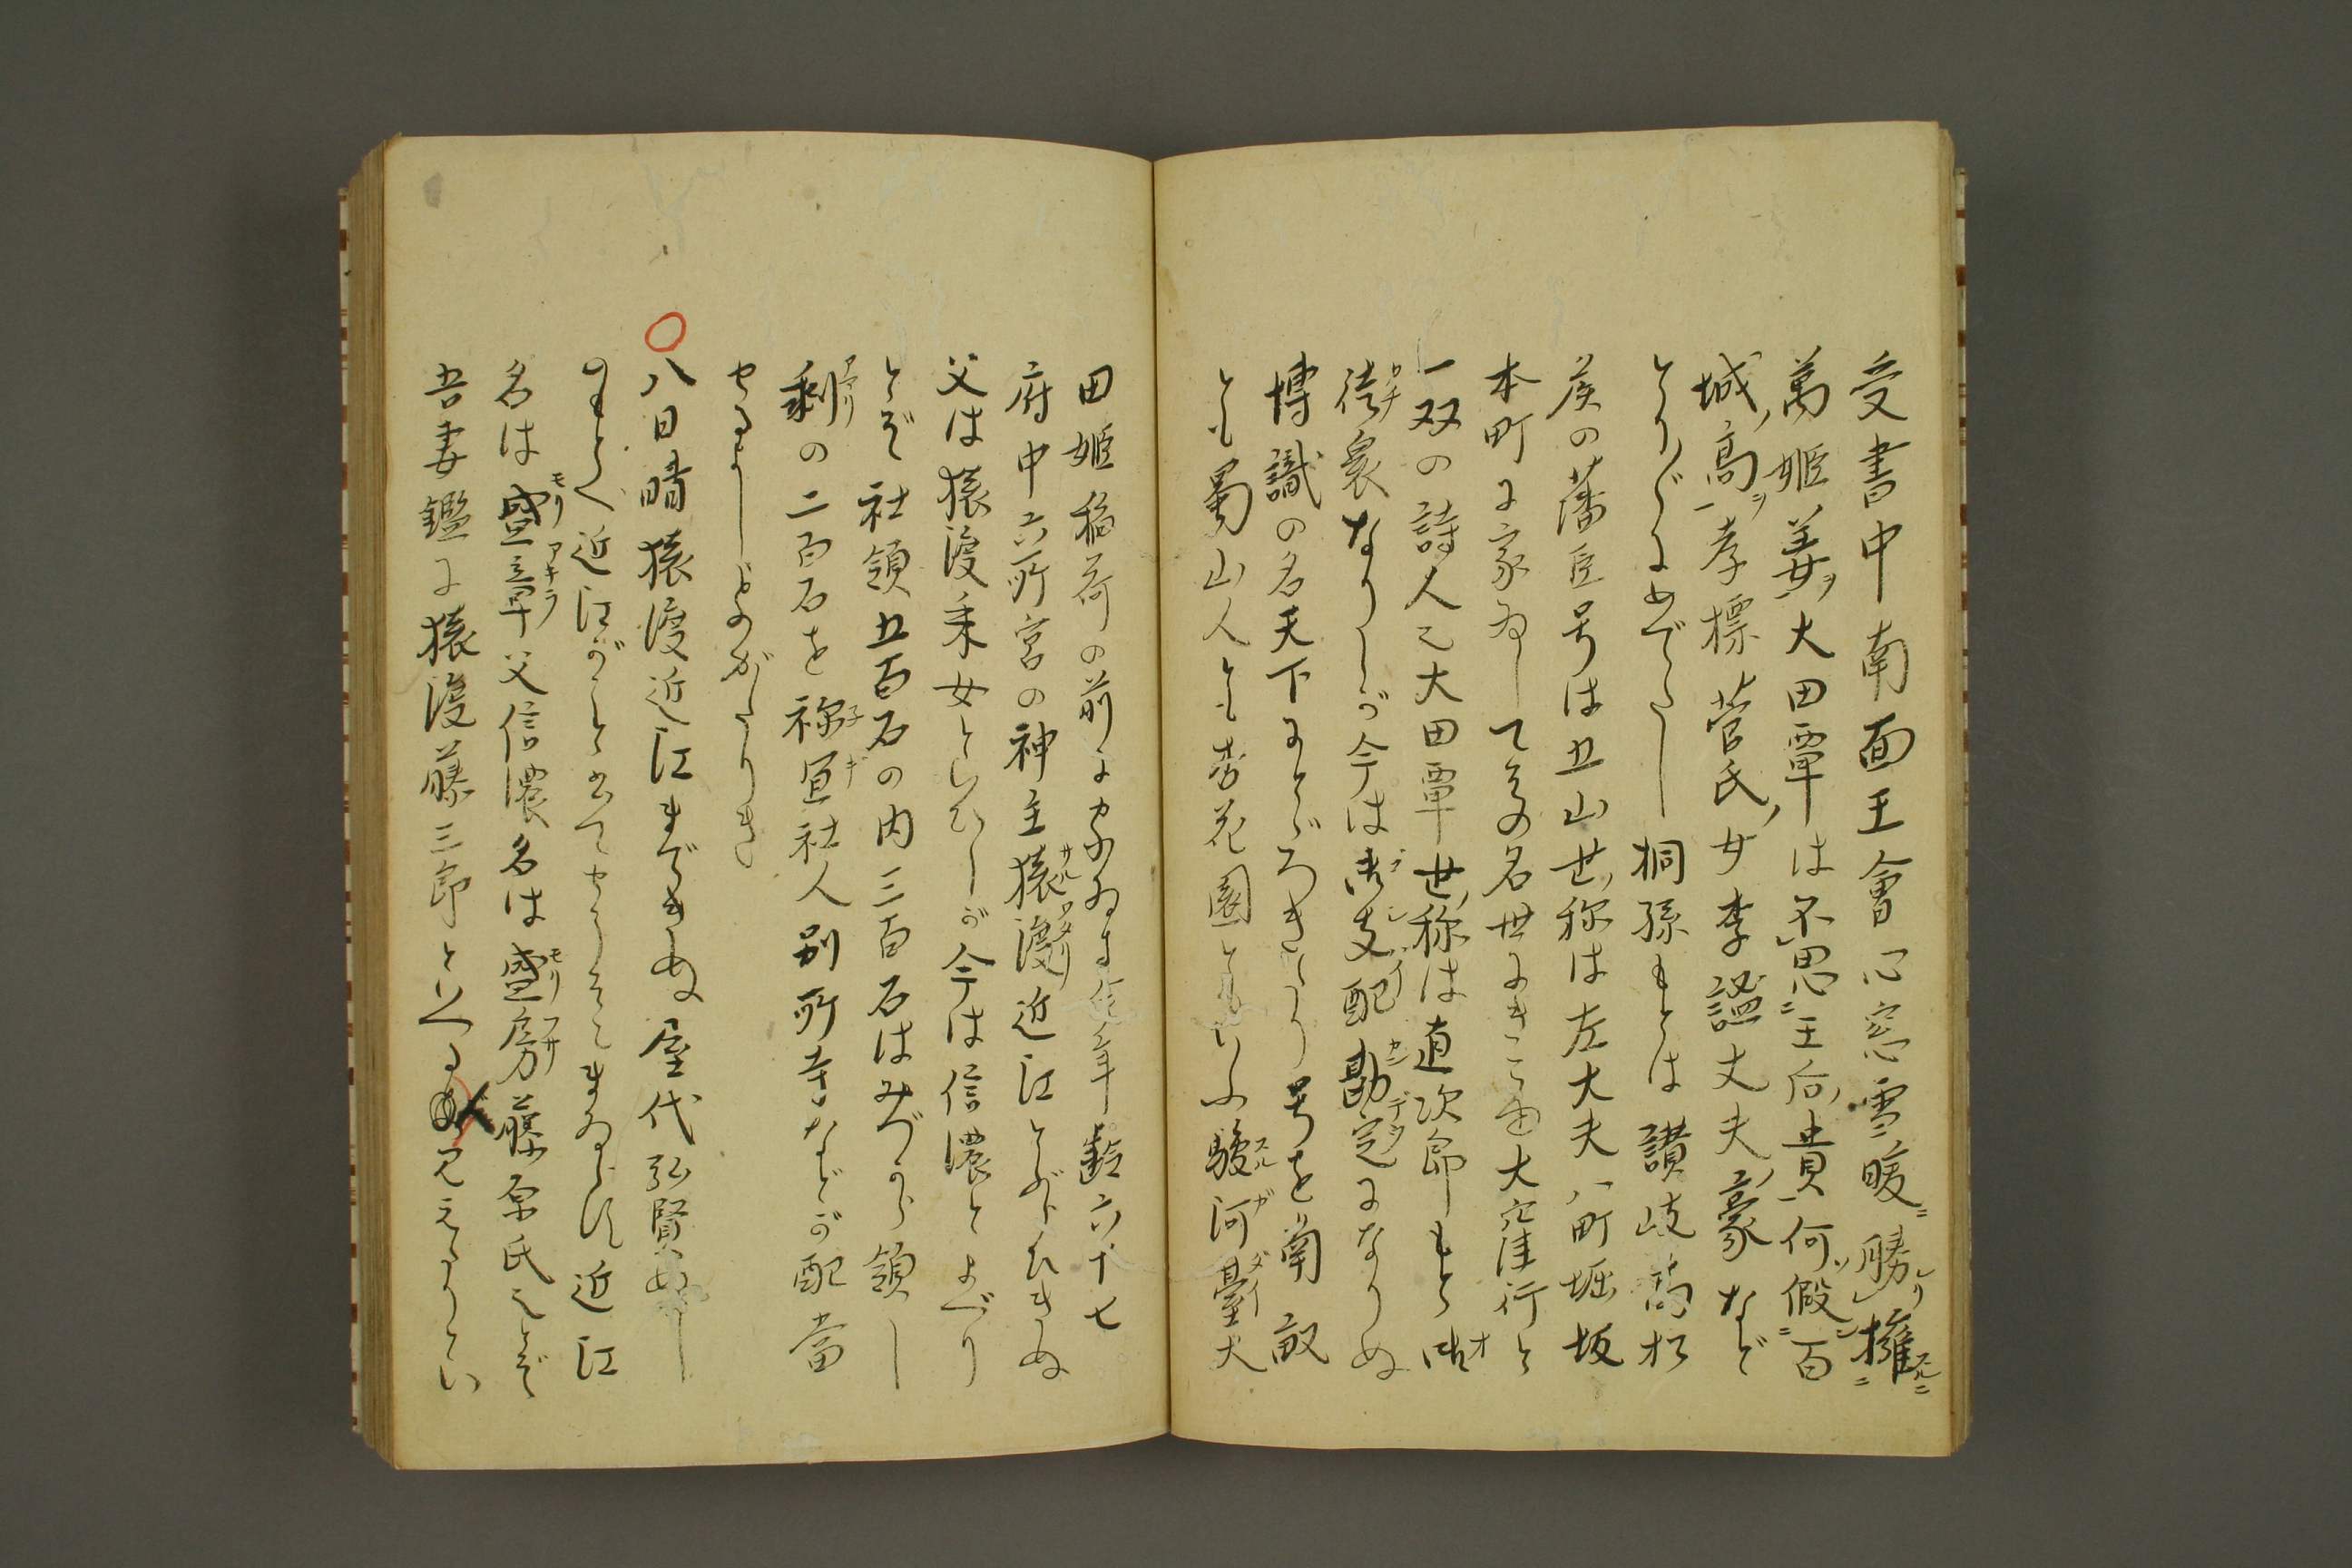 受書中南面王會心窓雪暖勝擁
萬姫姜大田覃は不思王后貴何假百
城高孝標菅氏女李謐丈夫豪など
とりどりにめでたし桐孫もとは讃岐高松
侯の藩臣号は五山世称は左大夫八町堀坂
本町に家ゐしてその名世にきこゆ大窪行と
一双の詩人也大田覃世称は直次郎もと御
徒衆なりしが今は御支配勘定になりぬ
博識の名天下にとゞろきたり号を南畝
とも蜀山人とも杏花園ともいふ駿河臺大
田姫稲荷の前に家ゐす年齢六十七
府中六所宮の神主猿渡近江とぶらひきぬ
父は猿渡釆女といひしが今は信濃とよべり
とぞ社領五百石の内三百石はみづから領し
剰の二百石を祢宜社人別所寺などが配当
せるよしものがたりき
〇八日晴猿渡近江まできぬ屋代弘賢
のもとへ近江がこと出てせうそこまゐらす近江
名は盛章父信濃名は盛房藤原氏也とぞ
吾妻鑑に猿渡藤三郎といへる見えたりとい